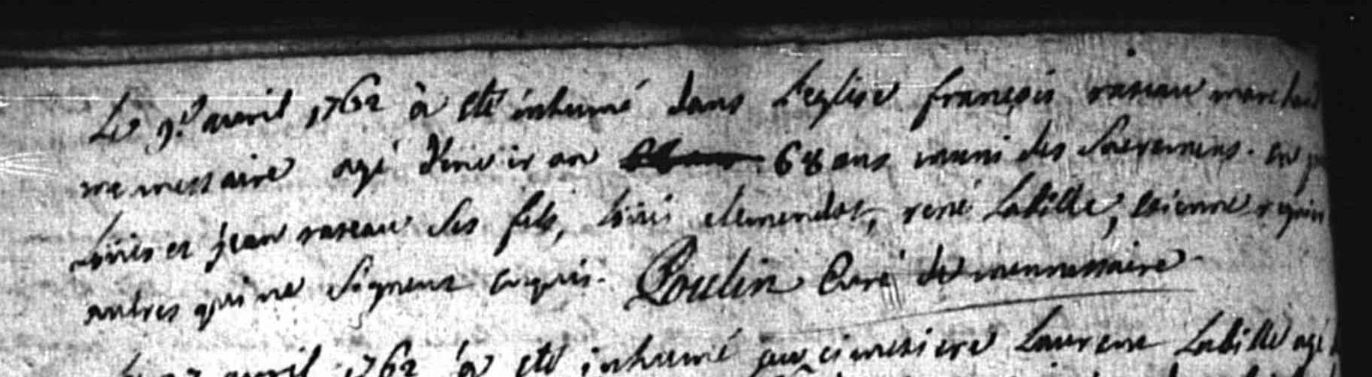 Le 9e. avril 1762 à eté inhumé dans L'eglise françois raseau marchand
mennessaire agé d'environ 68 ans muni des Sacremens. en
Loüis et jean raseau Ses fils, Loüis clemendot, rené Labille, etienne
autres qui ne Signent enquis. Poulin Curé de mennessaire
avril 1762 a eté inhumé au cimetiere Laurent Labille agé